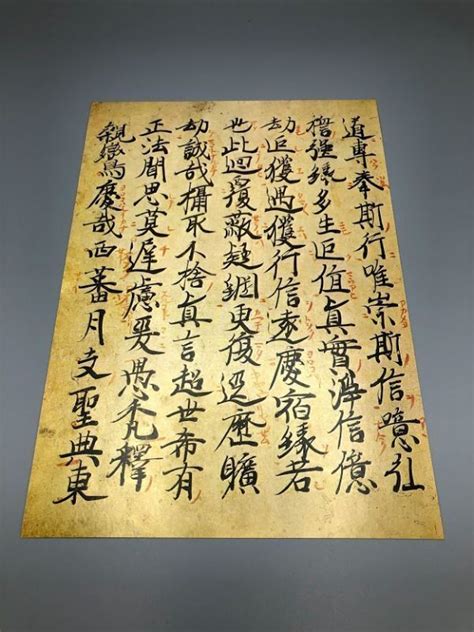 道專奉斯行唯崇斯信噫弘
誓强縁多生叵值眞實淨信億
劫叵獲遇獲行信遠慶宿縁若
也此迴覆蔽疑網更復逕歷曠
劫誠哉攝取不捨眞言超世希有
正法聞思莫遲慮爰愚禿釋
親鸞慶哉西蕃月支聖典東